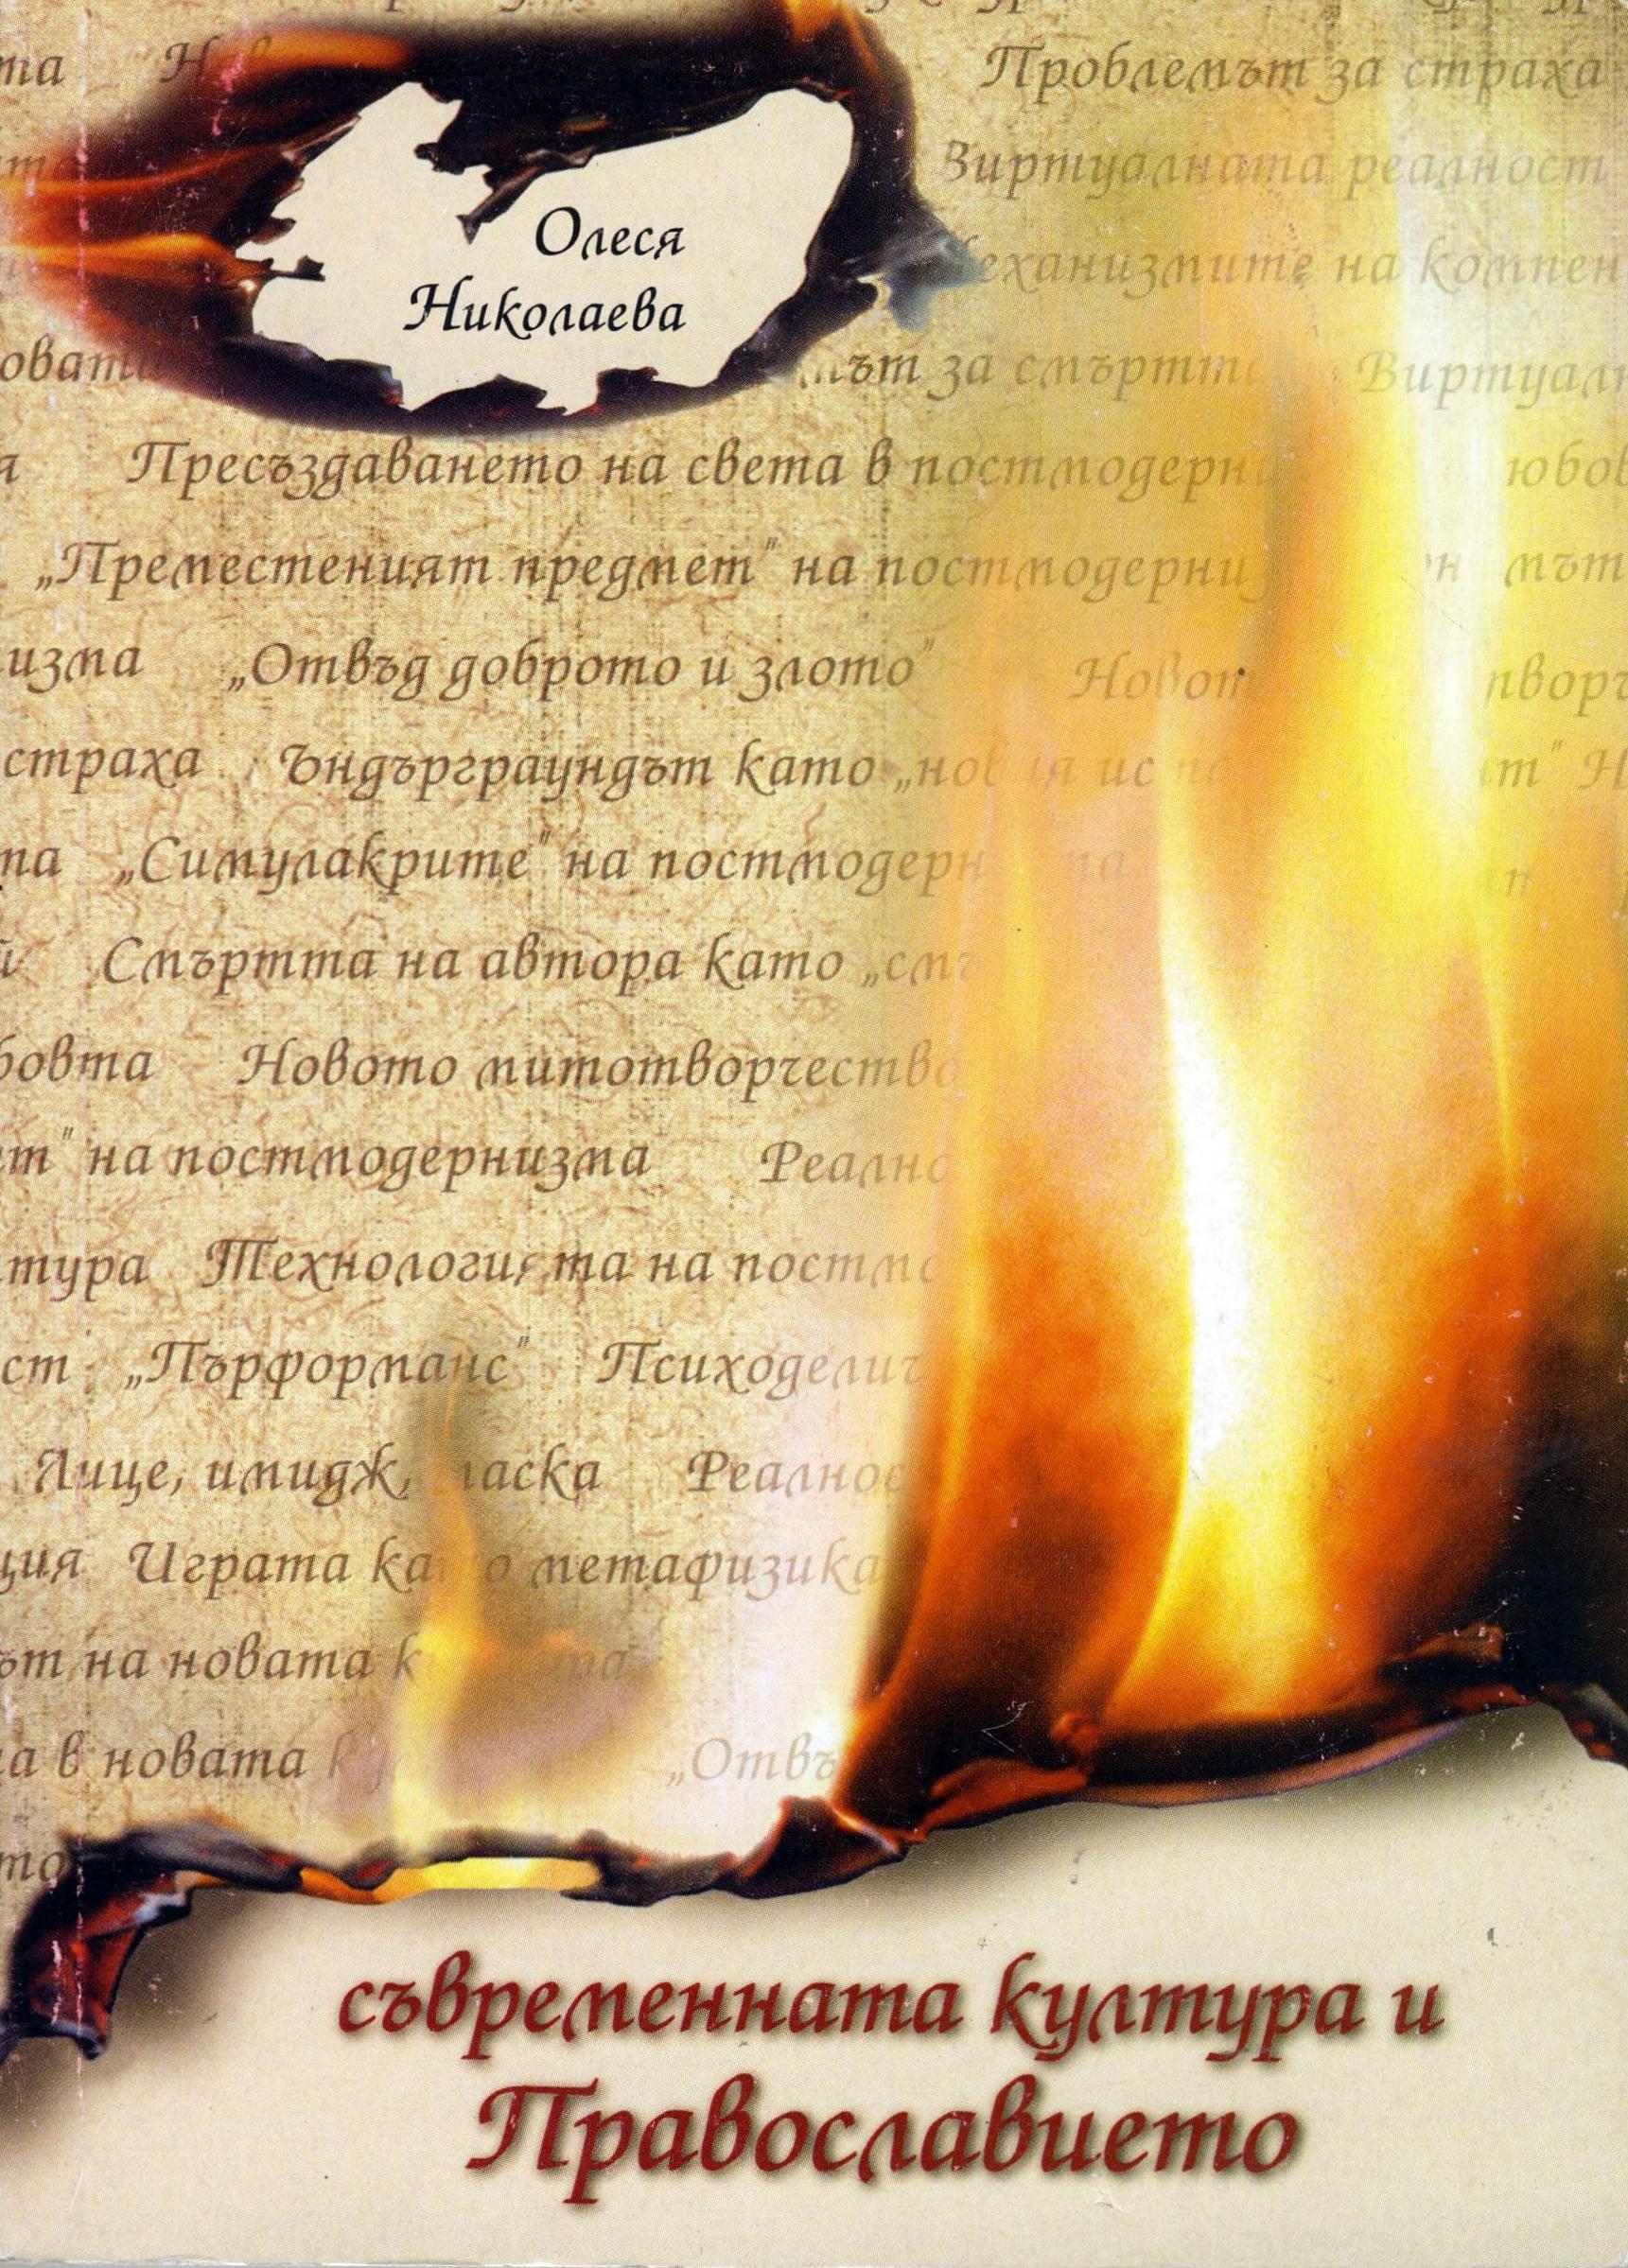 та Проблемът за страха
Виртуалната реалност
на компен
Олеся
Николаева
за смъртта Виртуал
Пресъздаването на света в постмодерни
„Преместеният предмет" на постмодерни мът
изма „Отвъд доброто и злото" творч
страха Ъндърграундът като
та „Симулакрите" на постмодерн
Смъртта на автора като „смъ
бовта Новото митотворчество
т" на постмодернизма Реално
тура Технологията на постмо
ст „Пърформанс" Психоделич
Лице, имидж, Реалнос
ция Играта като метафизика
ът на новата
а в новата „Отвъ
то
съвременната култура и
Православието